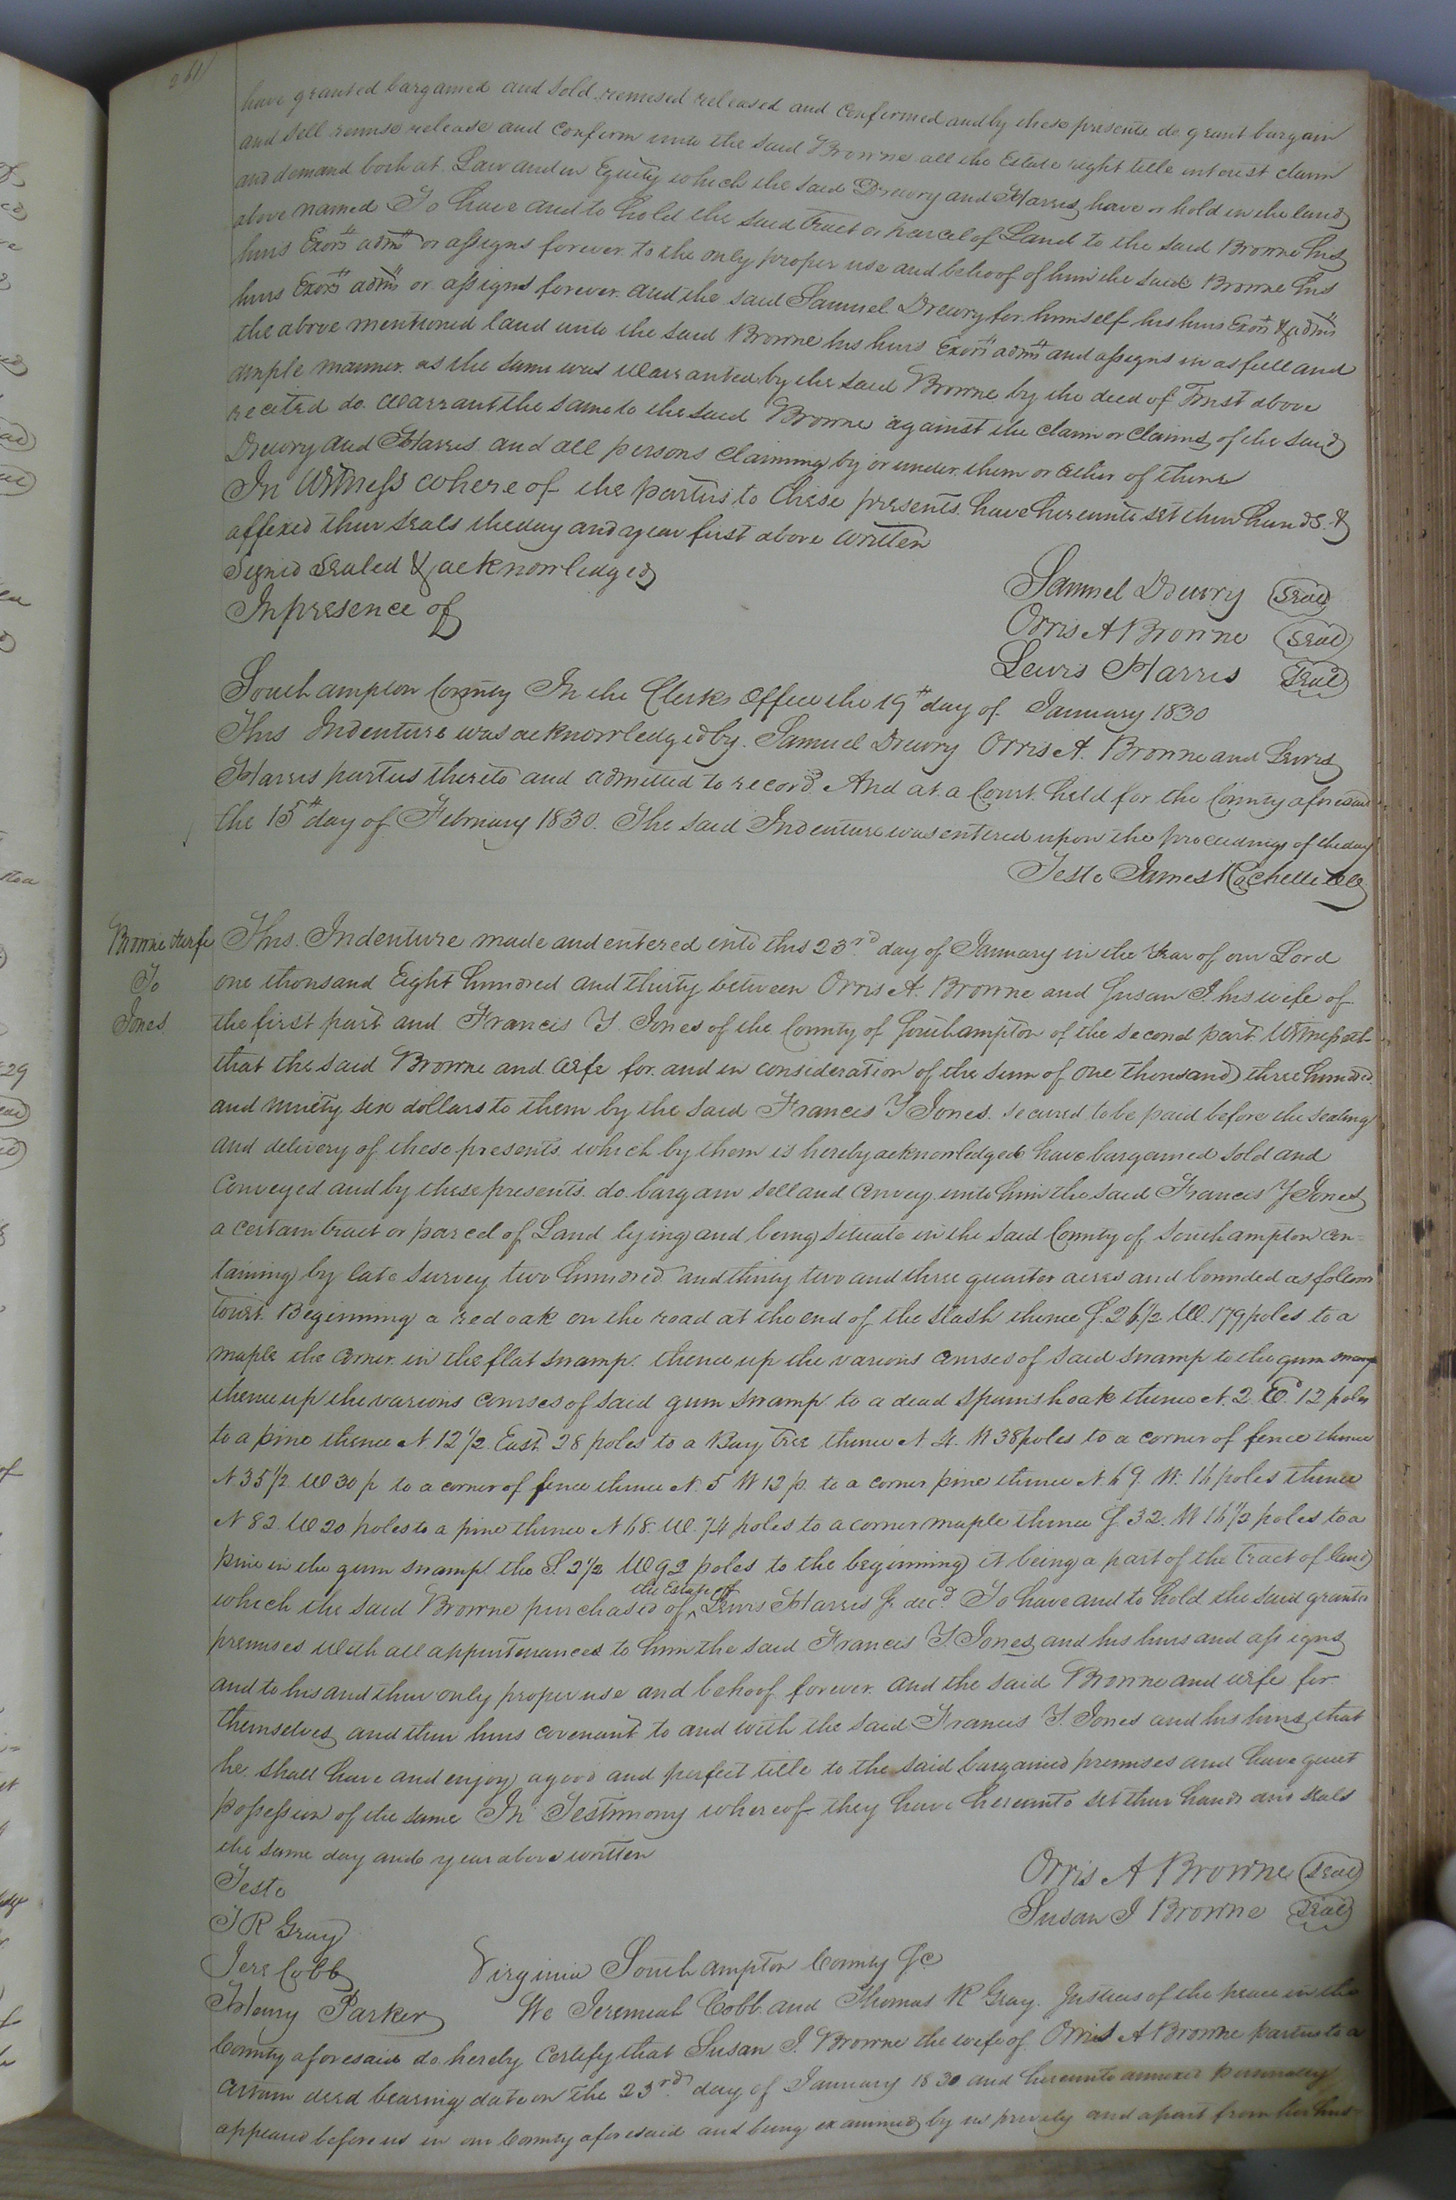 261
have granted bargained and sold remised released and confirmed and by these presents do grant bargain
and sell remise release and confirm unto the said Browne all the Estate right title interest claim
and demand both at Law and in Equity which the said Drewry and Harris have or hold in the land
above named To have and to hold the said tract or parcel of Land to the said Browne his
heirs Exors adms or assigns forever to the only proper use and behoof of him the said Browne his
heirs Exors adms or assigns forever and the said Samuel Drewry for himself his heirs Exors & adms
the above mentioned land unto the said Browne his heirs Exors adms and assigns in as full and
ample manner as the same was warranted by the said Browne by the deed of Trust above
recited do warrant the same to the said Browne against the claim or claims of the said
Drewry and Harris and all persons claiming by or under them or either of them
In Witness whereof the parties to these presents have hereunto set their hands &
affixed their seals the day and year first above written
Signed sealed & acknowledged
In presence of
Samuel Drewry seal
Orris A Browne seal
Lewis Harris seal
Southampton County In the Clerks Office the 19th day of January 1830
This Indenture was acknowledged by Samuel Drewry Orris A. Browne and Lewis
Harris parties thereto and admitted to record And at a Court held for the County aforesaid
the 15th day of February 1830. The said Indenture was entered upon the proceedings of the day
Teste James Rochelle Clk
Browne & wife
To
Jones
This Indenture made and entered into this 23rd day of January in the Year of our Lord
one thousand Eight hundred and thirty between Orris A. Browne and Susan J. his wife of
the first part and Francis Y. Jones of the County of Southampton of the second part Witnesseth
that the said Browne and wife for and in consideration of the sum of one thousand three hundred
and ninety six dollars to them by the said Francis Y Jones secured to be paid before the sealing
and delivery of these presents which by them is hereby acknowledged have bargained sold and
Conveyed and by these presents do bargain sell and convey unto him the said Francis Y Jones
a certain tract or parcel of Land lying and being situate in the said County of Southampton con=
taining by late survey two hundred and thirty two and three quarter acres and bounded as follows
towit. Beginning a red oak on the road at the end of the slash thence S. 26½ W. 179 poles to a
maple the corner in the flat swamp. thence up the various courses of said swamp to the gum swamp
thence up the various courses of said gum swamp to a dead spanish oak thence N. 2 W. 12 poles
to a pine thence N. 12½ East 28 poles to a Bay tree thence N 4. W 38 poles to a corner of fence thence
N 35½ W 30 p to a corner of fence thence N. 5 W 12 p. to a corner pine thence N. 69. W. 16 poles thence
N 82. W 20 poles to a pine thence N 68. W. 74 poles to a corner maple thence S 32. W 16½ poles to a
pine in the gum swamp the S. 2½ W 92 poles to the beginning it being a part of the tract of land
which the said Browne purchased of the Estate of Lewis Harris Jr decd To have and to hold the said granted
premises with all appurtenances to him the said Francis Y. Jones and his heirs and assigns
and to his and their only proper use and behoof forever. and the said Browne and wife for
themselves and their heirs covenant to and with the said Francis Y. Jones and his heirs that
he shall have and enjoy a good and perfect title to the said bargained premises and have quiet
possession of the same In Testimony whereof they have hereunto set their hands and seals
the same day and year above written
Teste
T R Gray
Jere Cobb
Henry Parker
Orris A Browne seal
Susan J Browne seal
Virginia Southampton County Sc
We Jeremiah Cobb and Thomas R Gray Justices of the peace in the
County aforesaid do hereby certify that Susan J. Browne the wife of Orris A Browne parties to a
certain deed bearing date on the 23rd day of January 1830 and hereunto annexed personally
appeared before us in our County aforesaid and being examined by us privily and apart from her hus